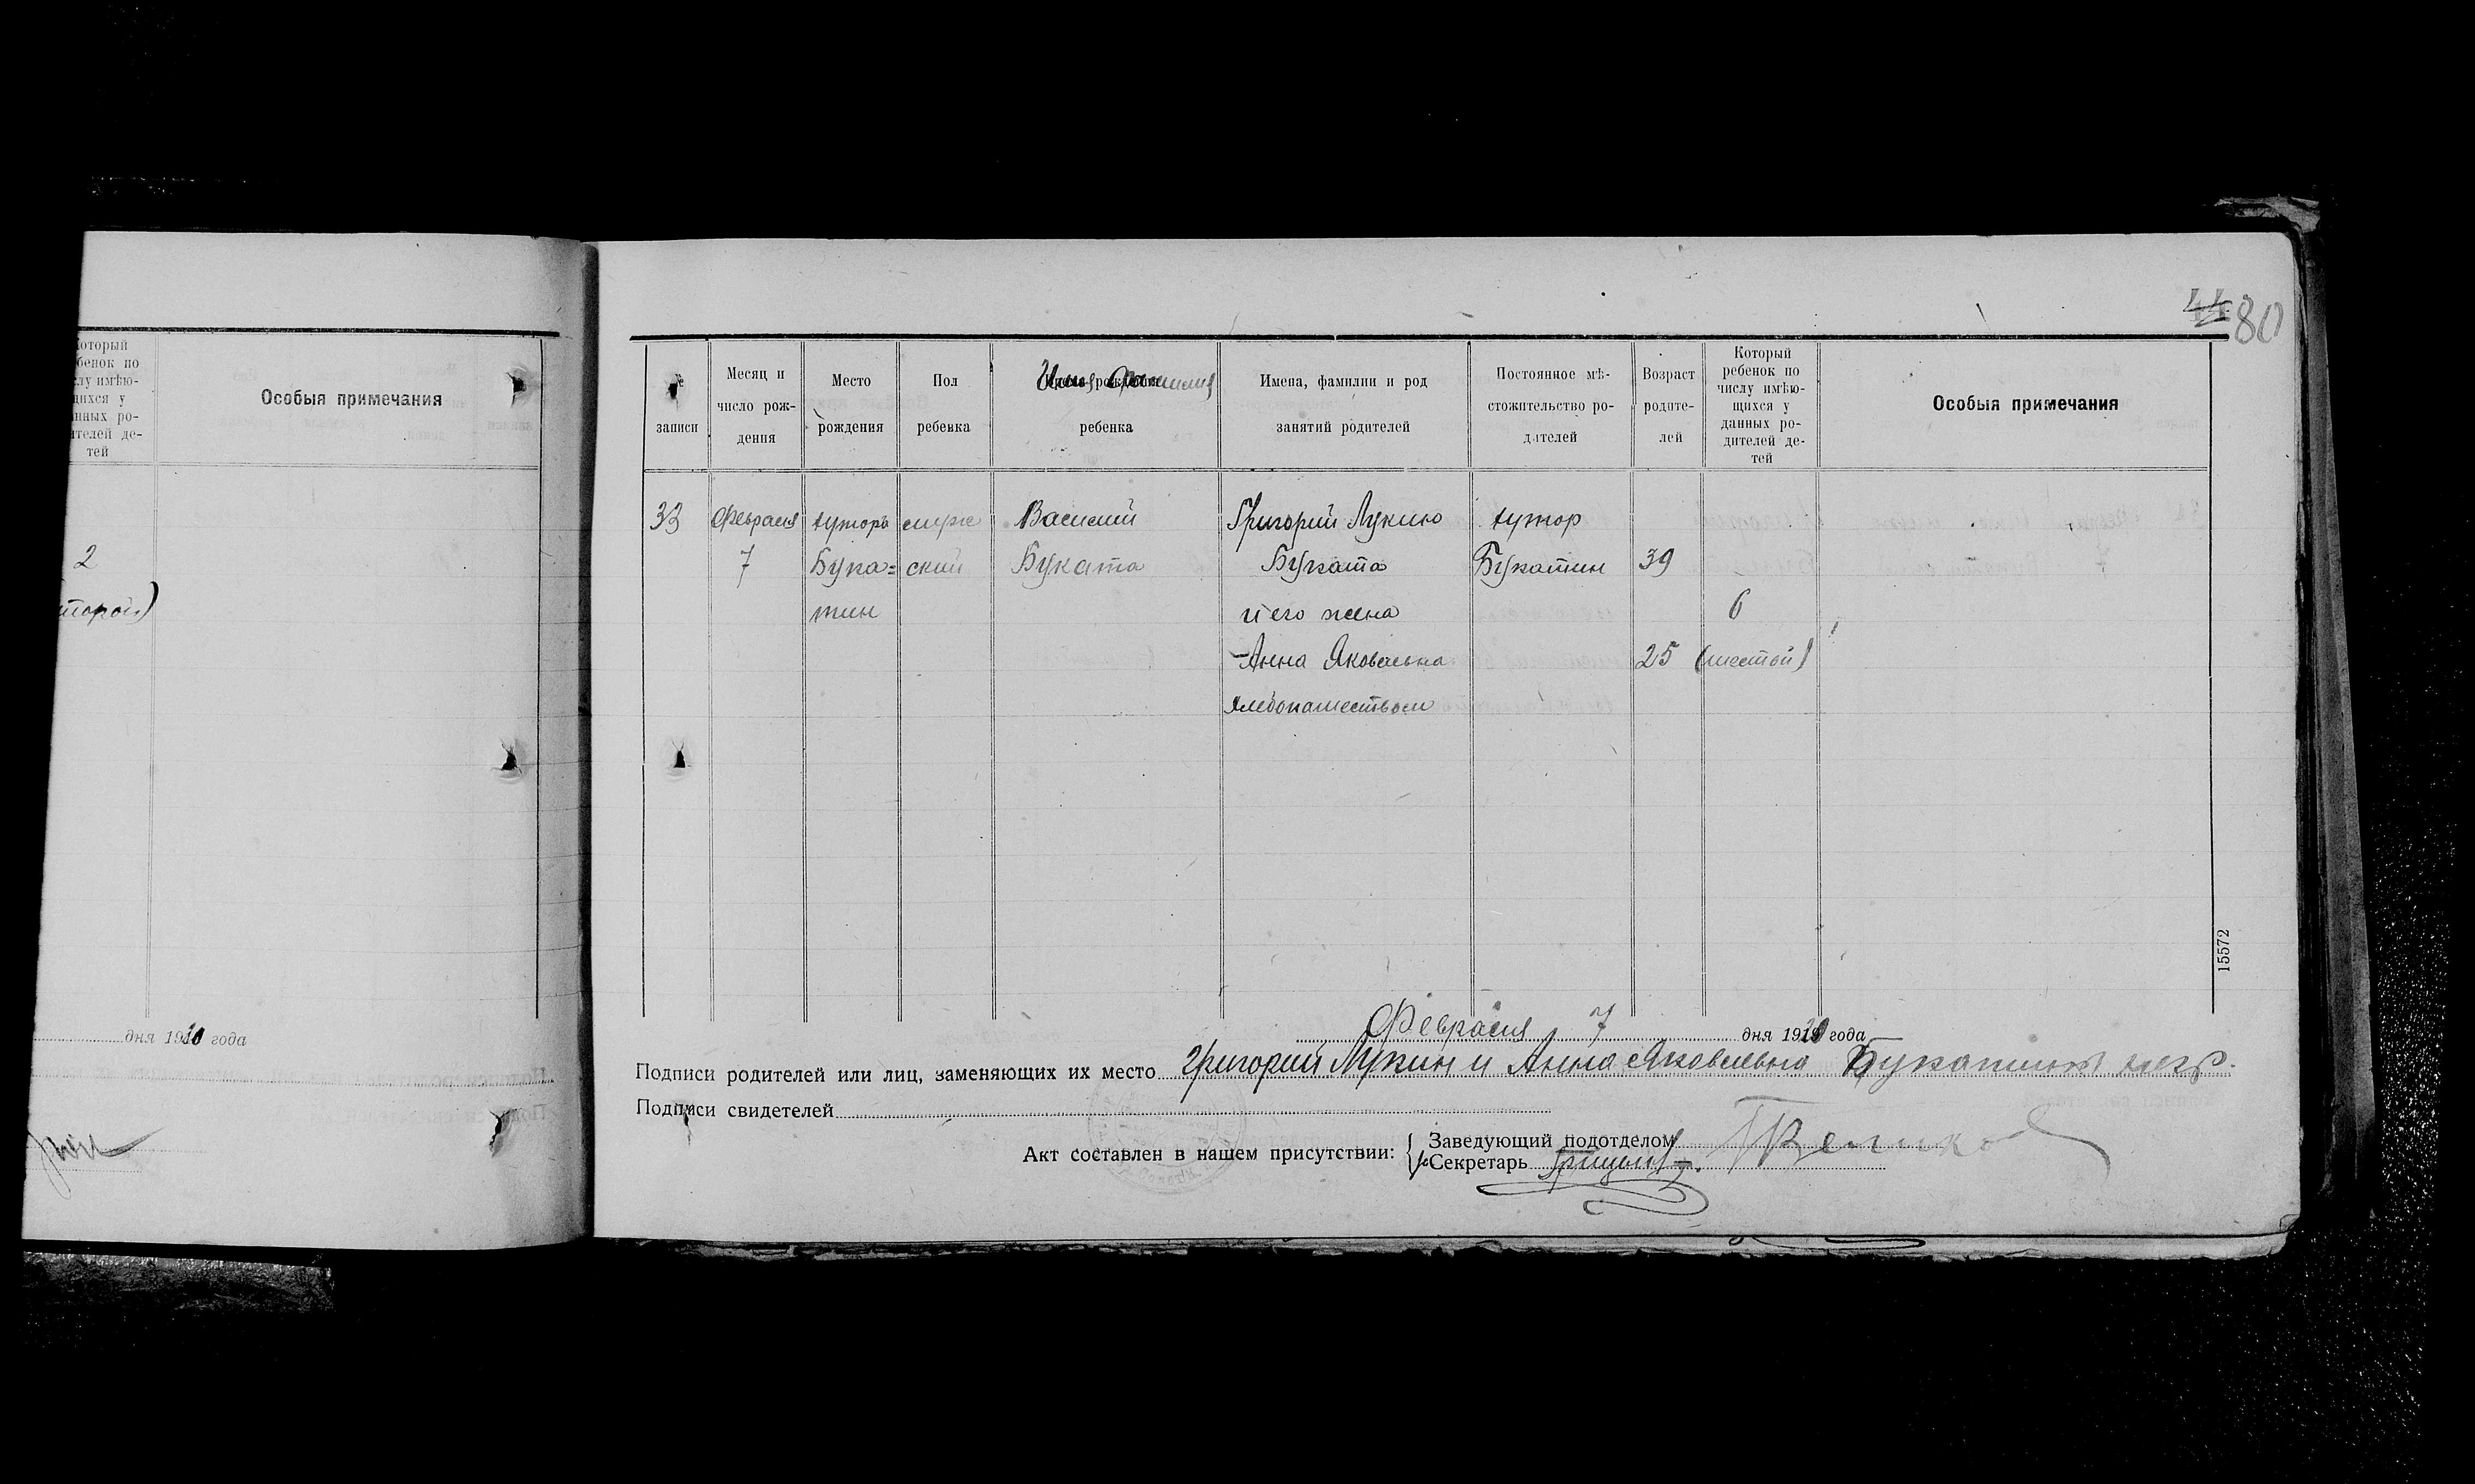 который
бенок по
слу имѣю-
щихся у
анных ро-
ителей де-
тей
Особыя примечания
2
торой)
дня 1920 года
44 80
№ записи
Месяц и число рож-дения
Место рождения
Пол ребенка
Имя, фамилия ребенка
Имена, фамилии и род занятий родителей
Постоянное мѣ-стожительство ро-дителей
Возраст родите-лей
Который ребенок по числу имѣю-щихся у данных ро-дителей де-тей
Особыя примечания
33 Февраля хуторъ муже Василий Григорий Лукин хутор
7 Бука= ский Буката Буката Букатин 39
тин и его жена 6
Анна Яковлевна 25 (шестой)
хлебопашеством
15572
Февраля 7 дня 1920 года
Подписи родителей или лиц, заменяющих их место Григорий Лукин и Анна Яковлевна Букатины негр.
Подписи свидетелей
Акт составлен в нашем присутствии:
Заведующий подотделом
Секретарь